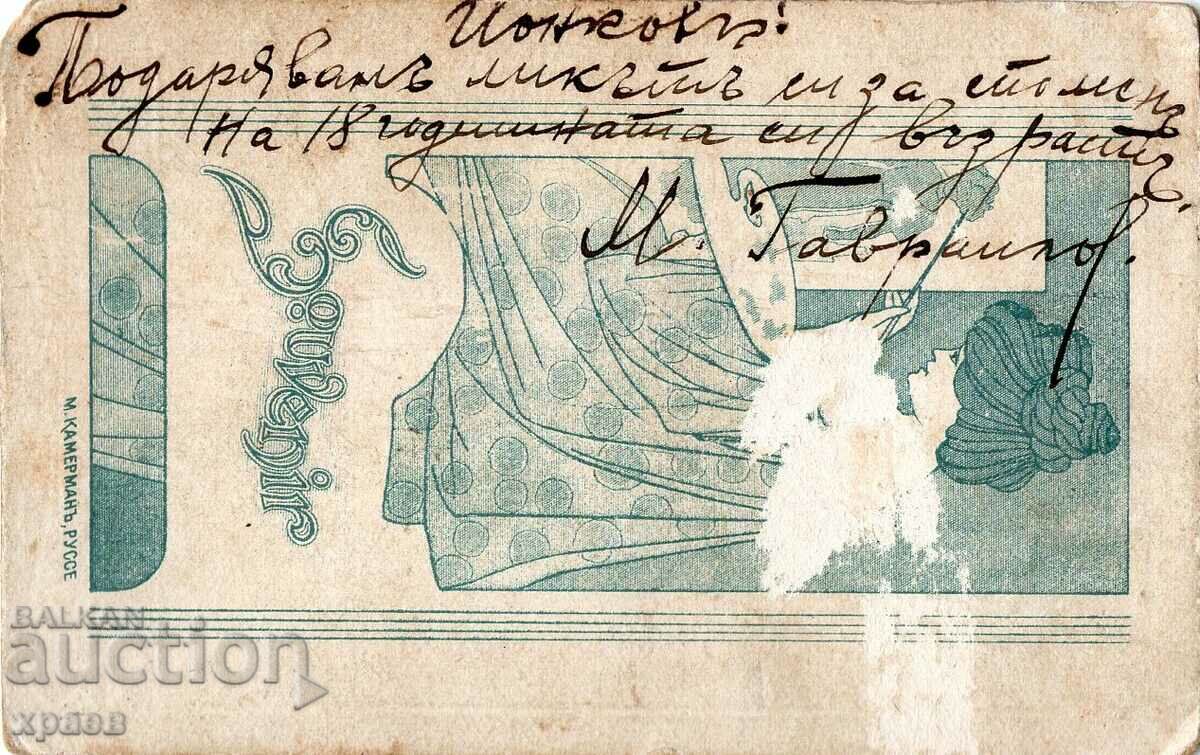 Йонковъ!
Подарявамъ ликътъ си за споменъ
На 18 годишната си възрасть.
М. Гавраилов.
Souvenir
М. КАМЕРМАНЪ, РУСЕ
BALKAN
auction
храов